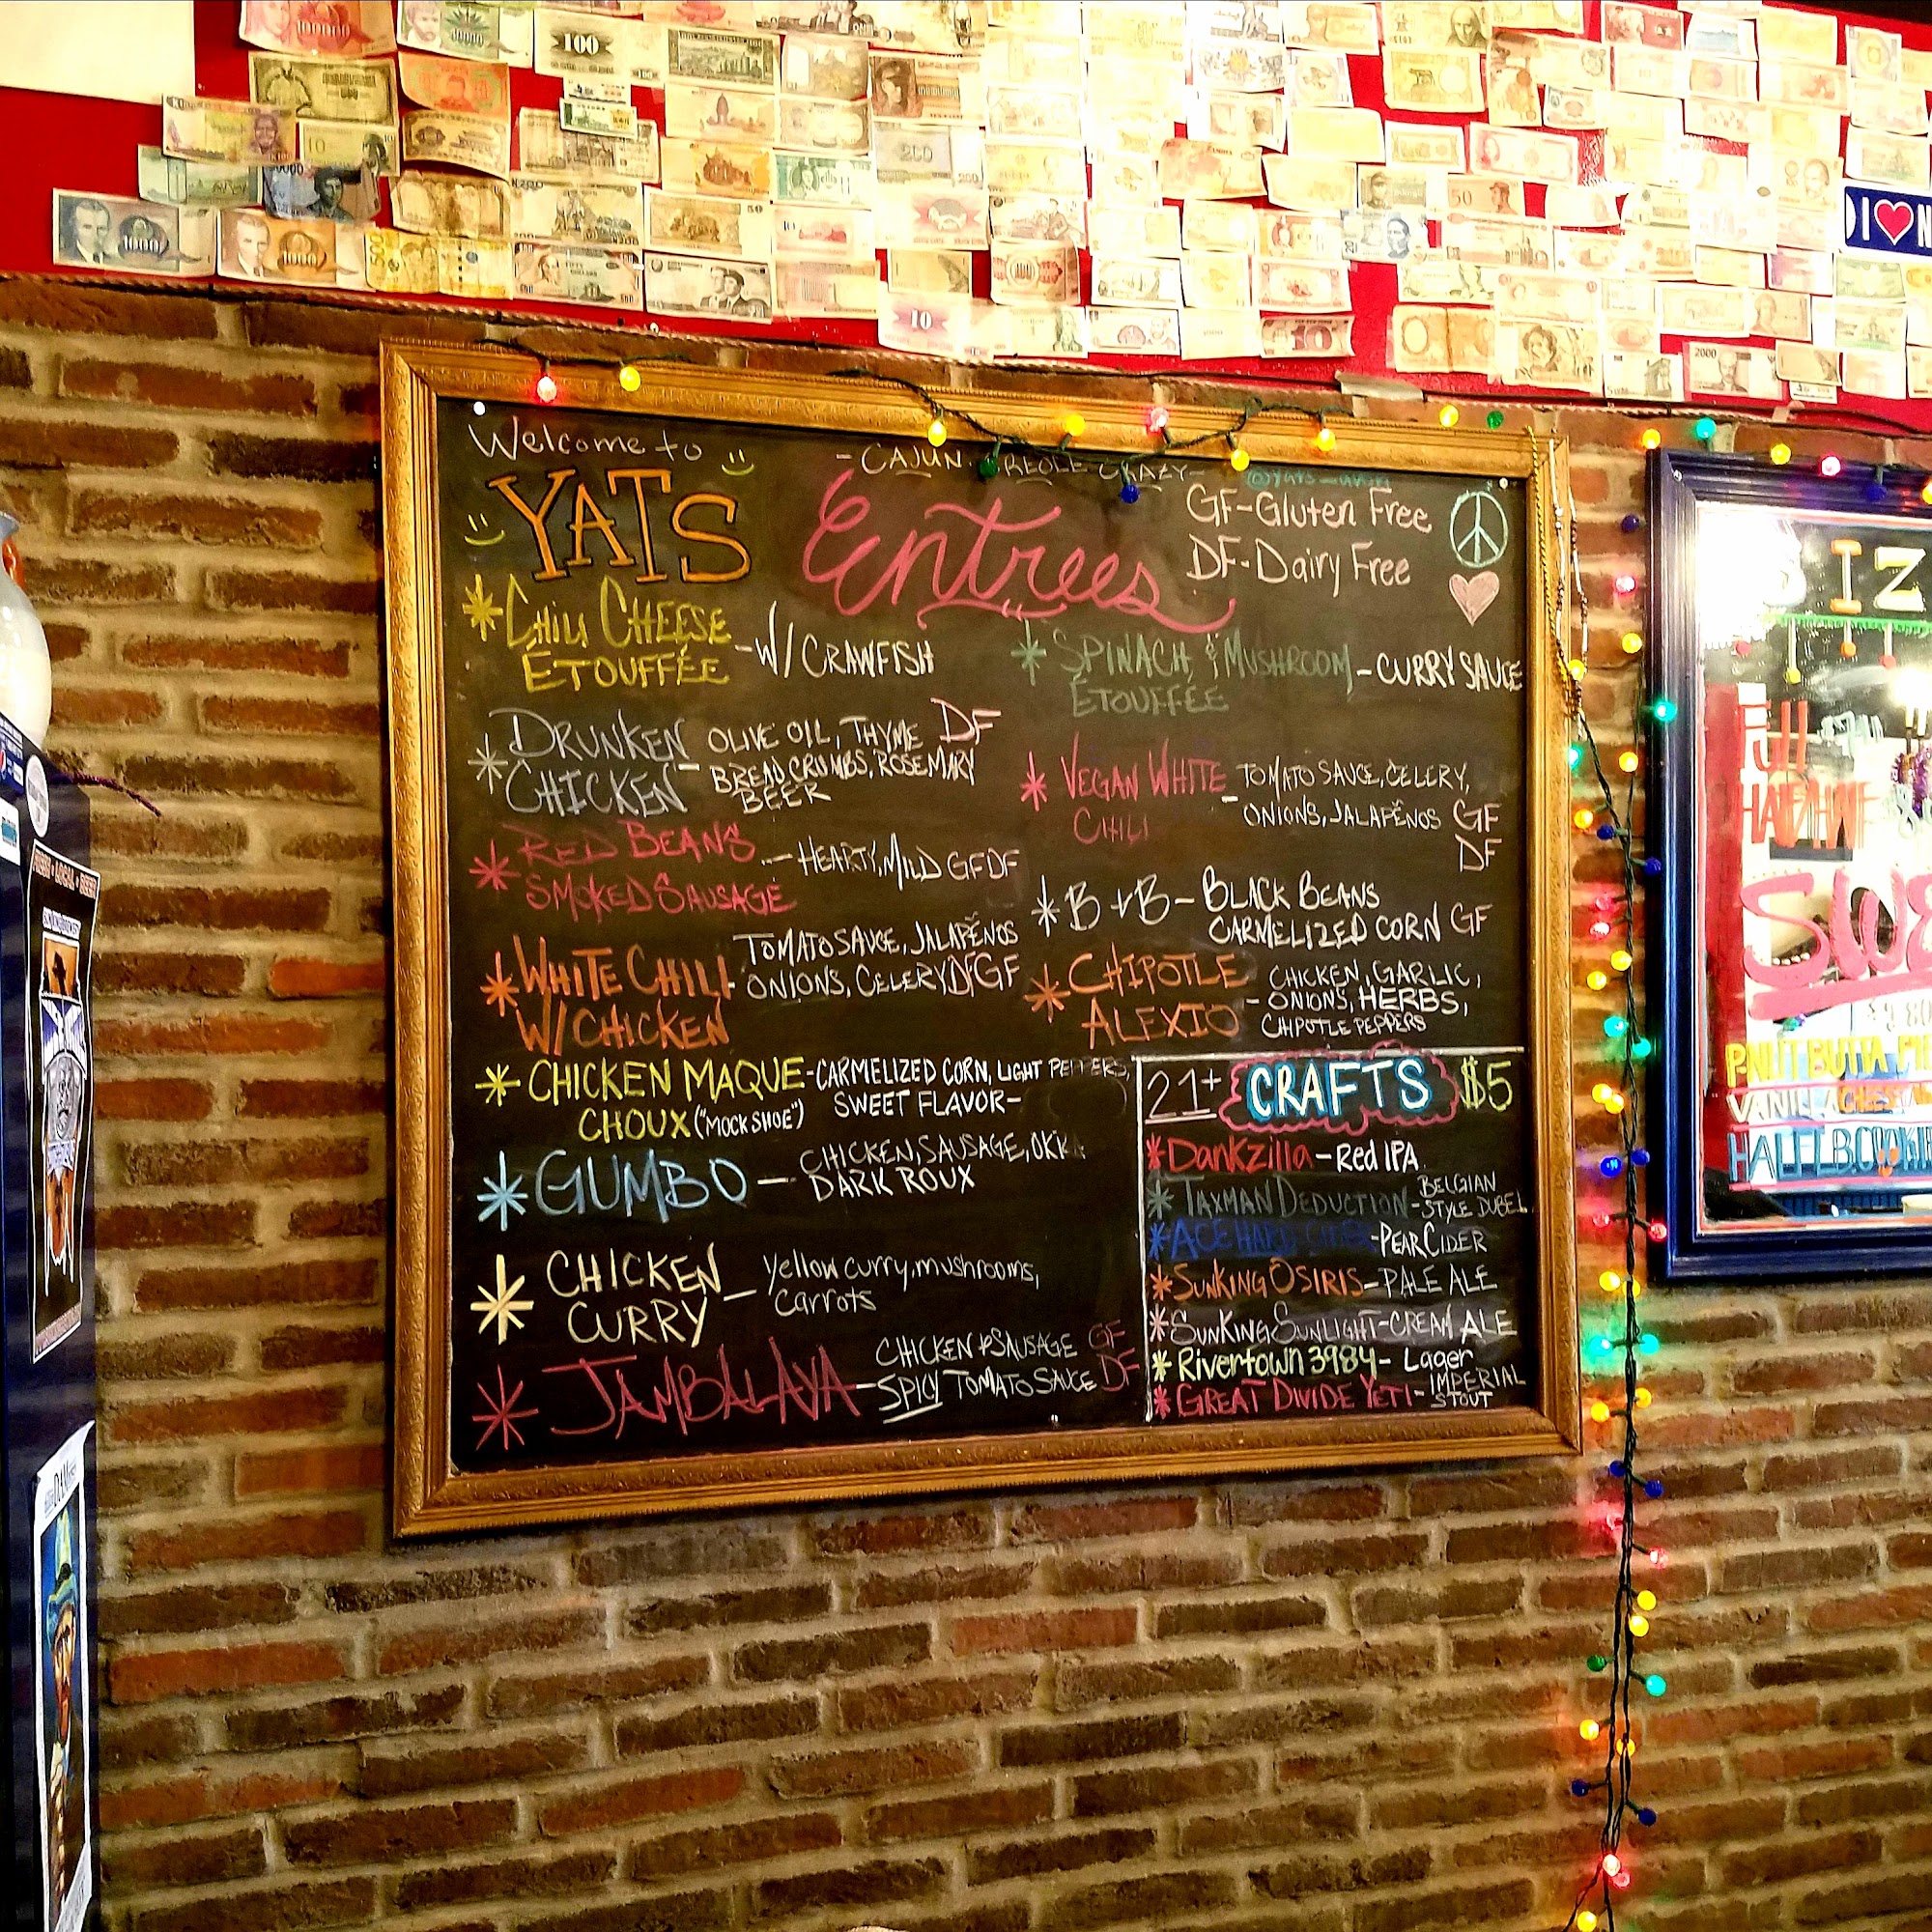 Welcome to
YATS
- CAJUN CREOLE CRAZY -
Entrees
GF-Gluten Free
DF-Dairy Free
* CHILI CHEESE
ÉTOUFFÉE
-W/ CRAWFISH
* DRUNKEN
CHICKEN
- OLIVE OIL, THYME DF
BREAD CRUMBS, ROSEMARY
BEER
* RED BEANS
SMOKED SAUSAGE
- HEARTY, MILD GF DF
* WHITE CHILI
W/ CHICKEN
- TOMATO SAUCE, JALAPEÑOS
ONIONS, CELERY DF GF
* CHICKEN MAQUE
CHOUX ("MOCK SHOE")
-CARMELIZED CORN, LIGHT PEPPERS,
SWEET FLAVOR-
* GUMBO
- CHICKEN, SAUSAGE, OKRA
DARK ROUX
* CHICKEN
CURRY
- Yellow curry, mushrooms,
Carrots
* JAMBALAYA
- CHICKEN & SAUSAGE GF
SPICY TOMATO SAUCE DF
* SPINACH & MUSHROOM
ÉTOUFFÉE
- CURRY SAUCE
* VEGAN WHITE
CHILI
- TOMATO SAUCE, CELERY,
ONIONS, JALAPEÑOS GF
DF
* B + B - BLACK BEANS
CARMELIZED CORN GF
* CHIPOTLE
ALEXIO
- CHICKEN, GARLIC,
ONIONS, HERBS,
CHIPOTLE PEPPERS
21+ CRAFTS $5
* Dankzilla - Red IPA
* TAXMAN DEDUCTION - BELGIAN
STYLE DUBEL
* ACE HARD CIDER - PEAR CIDER
* SUNKING OSIRIS - PALE ALE
* SUNKING SUNLIGHT - CREAM ALE
* Rivertown 3984 - Lager
* GREAT DIVIDE YETI - IMPERIAL
STOUT
I ♥ N
IZ
SWE
VANILLA
100000
10000
100
1000
1000
200
50
10
100
10
50
2000